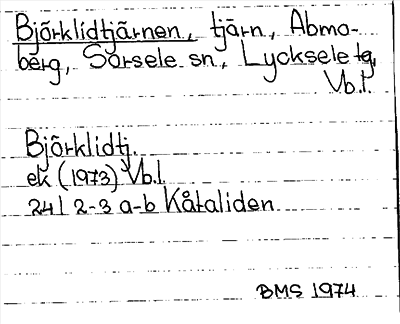 Björklidtjärnen, tjärn, Abmo-
berg, Sorsele sn, Lycksele tg,
Vb.l.
Björklidtj.
ek (1973) Vb.l.
24I 2-3 a-b Kåtaliden
BMS 1974